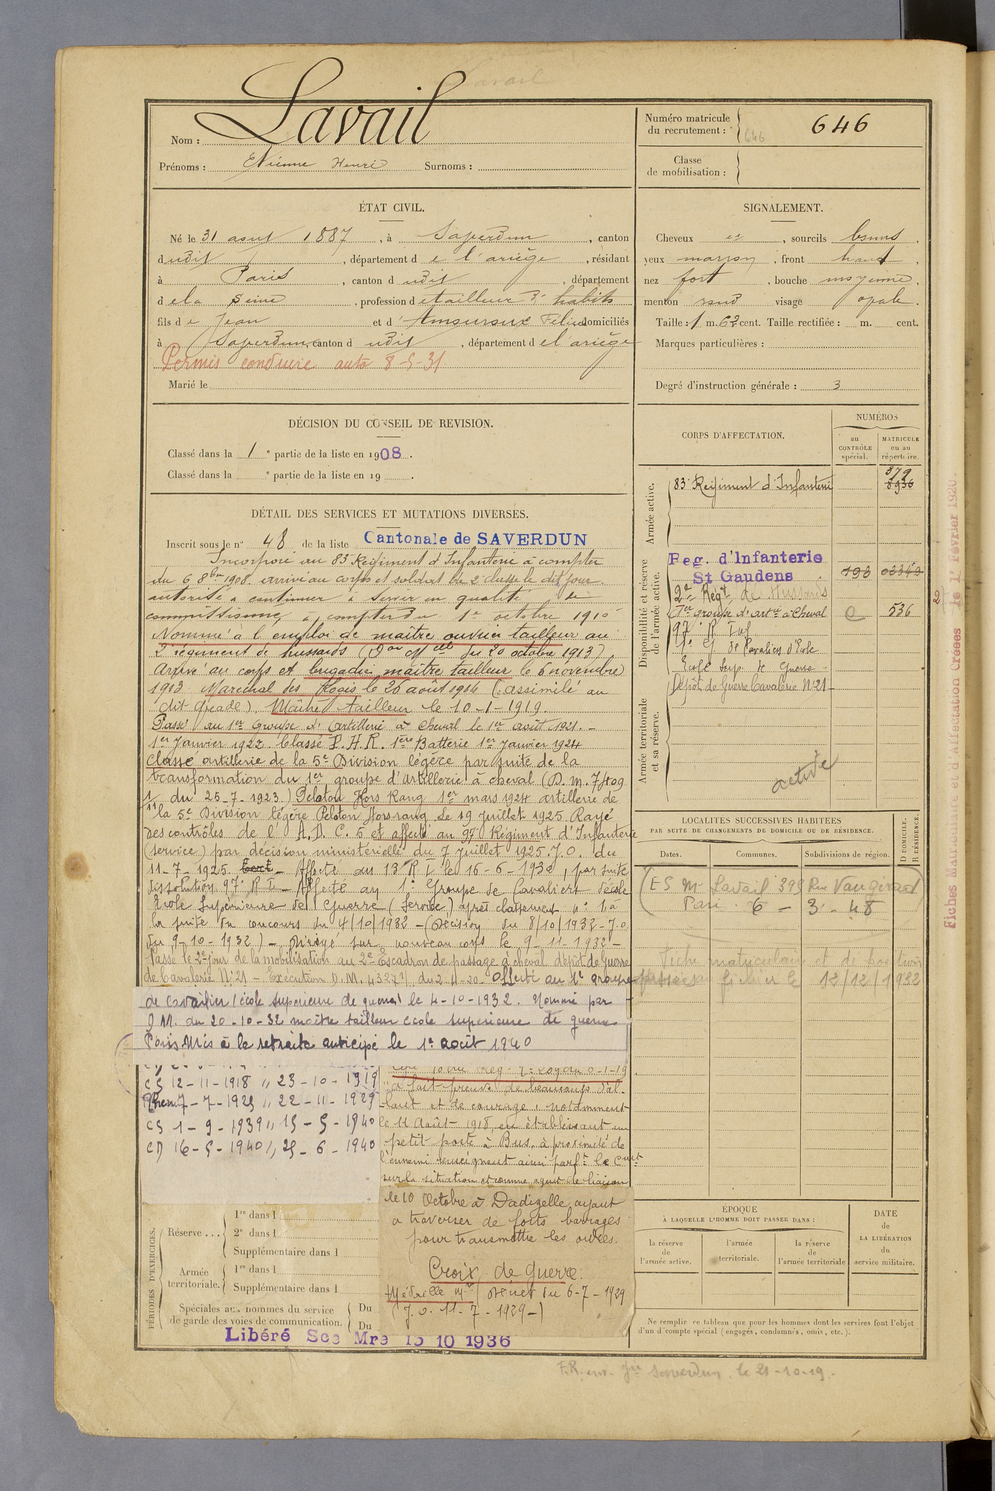 Lavail
Nom : Lavail
Prénoms : Etienne Henri Surnoms :
Numéro matricule du recrutement : 646 646
Classe de mobilisation :
ÉTAT CIVIL.
Né le 31 aout 1887, à Saverdun, canton
dudit, département de l'ariège, résidant
à Paris, canton dudit, département
dela Seine, profession de tailleur d'habits
fils de Jean et d' domiciliés
à Saverdun canton dudit, département de l'ariège
Permis conduire auto 8-5-31
Marié le
SIGNALEMENT.
Cheveux et, sourcils bruns.
yeux marron, front haut,
nez fort, bouche moyenne,
menton rond visage ovale.
Taille : 1 m. 62 cent. Taille rectifiée : m. cent.
Marques particulières :
Degré d'instruction générale : 3
DÉCISION DU CONSEIL DE REVISION.
Classé dans la 1e partie de la liste en 1908.
Classé dans la e partie de la liste en 19
DÉTAIL DES SERVICES ET MUTATIONS DIVERSES.
Inscrit sous le n° 48 de la liste Cantonale de SAVERDUN
Incorporé au 83e Régiment d'Infanterie à compter
du 6 8bre 1908. arrivé au corps et soldat de 2e classe le dit jour.
autorisé à continuer à servir en qualité de
commissionné à compter du 1er octobre 1910
Nommé à l'emploi de maître ouvrier tailleur au
2e régiment de hussards (Don Mlle du 20 octobre 1913)
Arrivé au corps et brigadier maître tailleur le 6 novembre
1913. Maréchal des Logis le 26 août 1914 (assimilé au
dit grade). Maître tailleur le 10-1-1919.
Passé au 1er Groupe d'Artillerie à Cheval le 1er août 1921.-
1er Janvier 1922 Classé P.H.R. 1ère Batterie 1er Janvier 1924
classé artillerie de la 5e Division légère par suite de la
transformation du 1er groupe d'artillerie à cheval (D.M. 7409
1/11 du 25-7-1923.) Peloton Hors Rang 1er mars 1924 artillerie de
la 5e Division légère Peloton Hors rang. Le 19 juillet 1925 Rayé
des contrôles de l'A.D.C.5 et affecté au 97e Régiment d'Infanterie
(service) par décision ministérielle du 7 juillet 1925 J.O. du
11-7-1925. Affecté au 13e R I le 16-6-1930, par suite
dissolution 97e R I - Affecté au 1er Groupe de Cavaliers d'école
Ecole Supérieure de Guerre (Service) après classement n° 1 à
la suite du concours du 4/10/1932 - (Décision du 8/10/1932 - J.O.
du 9-10-1932) - Dirigé sur nouveau corps le 9-11-1932 -
Passe le 2e jour de la mobilisation au 2e Escadron de passage à cheval dépôt de guerre
de Cavalerie N°21 - Exécution D.M. 4327 Affecté au 1er groupe
de cavaliers (école supérieure de guerre) le 4-10-1932. Nommé par
D.M. du 20-10-32 maître tailleur école supérieure de guerre
Paris. Mis à la retraite anticipée le 1er août 1940
CS 12-11-1918 // 23-10-1919
7-7-1925 // 22-11-1929
CS 1-9-1939 // 15-5-1940
CD 16-5-1940 // 25-6-1940
a fait preuve de beaucoup d'al-
lant et de courage, notamment
le 11 Août 1918, en établissant un
petit poste à Bus, à proximité de
l'ennemi renseignant ainsi parft. le Cmt
sur la situation et comme agent de liaison
le 10 Octobre à Dadizelle ayant
à traverser de forts barrages
pour transmettre les ordres.
Croix de Guerre.
Médaille Mre Décret du 6-7-1929
(J.O. 11-7-1929-)
PÉRIODES D'EXERCICES.
Réserve ... 1re dans l
2e dans l
Supplémentaire dans l
Armée territoriale. 1re dans l
Supplémentaire dans l
Spéciales aux hommes du service de garde des voies de communication. Du
Du
Libéré Sce Mre 15 10 1936
CORPS D'AFFECTATION.
NUMÉROS
au CONTRÔLE spécial.
MATRICULE ou au répertoire.
Armée active.
83e Régiment d'Infanterie 379 8936
Disponibilité et réserve de l'armée active.
Reg. d'Infanterie
St Gaudens 193
2e Régt de Hussards
1er groupe d'artie à Cheval 0 536
97e R Inf
1er Gr de Cavaliers d'Ecole
Ecole Sup. de Guerre -
Dépôt de Guerre Cavalerie N°21
Armée territoriale et sa réserve.
active
LOCALITÉS SUCCESSIVES HABITÉES
PAR SUITE DE CHANGEMENTS DE DOMICILE OU DE RÉSIDENCE.
Dates. Communes. Subdivisions de région. D DOMICILE. R RÉSIDENCE.
(ES Mr Lavail 393 Rue Vaugirard)
Paris 6 - 3 - 48
Fiche matriculaire et de
le 12/12/1932
ÉPOQUE
À LAQUELLE L'HOMME DOIT PASSER DANS :
la réserve de l'armée active.
l'armée territoriale.
la réserve de l'armée territoriale
DATE de LA LIBÉRATION du service militaire.
Ne remplir ce tableau que pour les hommes dont les services font l'objet
d'un d'compte spécial (engagés, condamnés, omis, etc.).
Saverdun. le 21-10-19.
Fiches Matriculaire et d'Affectation Créées le 1er Février 1920.